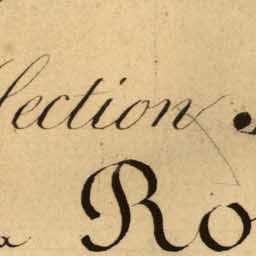 lection
Ro